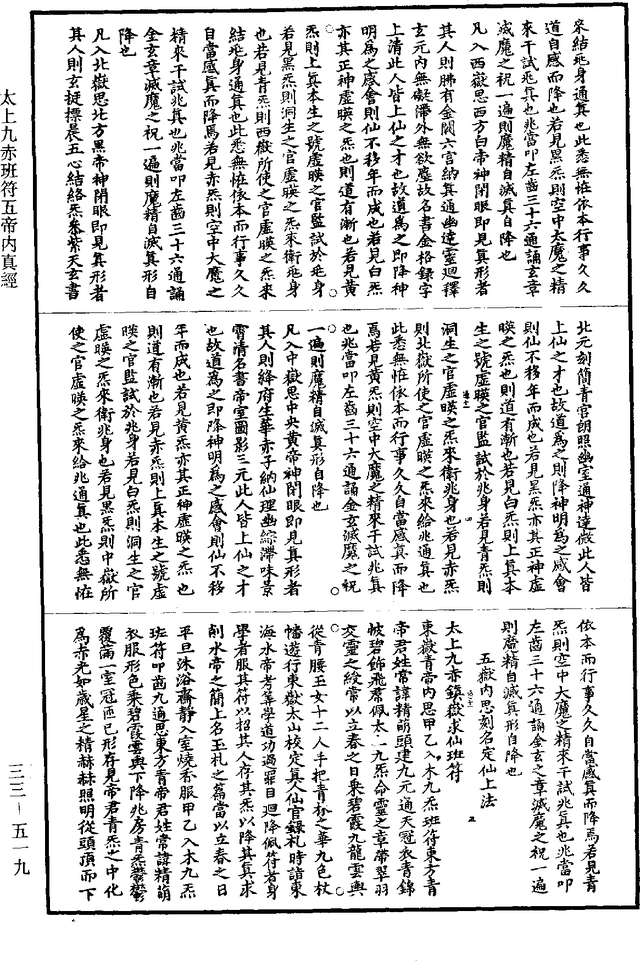 來結兆身通真也此悉無恠依本行事久久
道自感而降也若見黑炁則空中太魔之精
來干試兆真也兆當叩左齒三十六通誦玄章
滅魔之祝一遍則魔精自滅真自降也
凡入西嶽思西方白帝神閉眼即見真形者
其人則胏有金闕六宮納真通幽達靈迴釋
玄元內無礙滯外無欲塵故名書金格錄字
上清此人皆上仙之才也故道為之即降神
明為之感會則仙不移年而成也若見白炁
亦其正神虛暎之炁也則道有漸也若見黃
炁則上真本生之號虛暎之官監試於兆身
若見黑炁則洞生之官虛暎之炁來衛兆身
也若見青炁則西嶽所使之官虛暎之炁來
結兆身通真也此悉無恠依本而行事久久
自當感真而降焉若見赤炁則空中大魔之
精來干試兆真也兆當叩左齒三十六通誦
金玄章滅魔之祝一遍則魔精自滅真形自
降也
凡入北嶽思北方黑帝神閉眼即見真形者
其人則玄挺標晨五心結絡炁參紫天玄書
北元刻簡青宮朗照幽室通神達微此人皆
上仙之才也故道為之則降神明為之感會
則仙不移年而成也若見黑炁亦其正神虛
暎之炁也則道有漸也若見白炁則上真本
生之號虛暎之官監試於兆身若見青炁則
洞生之官虛暎之炁來衛兆身也若見赤炁
則北嶽所使之官虛暎之炁來給兆通真也
此悉無恠依本而行事久久自當感真而降
焉若見黃炁則空中大魔之精來干試兆真
也兆當叩左齒三十六通誦金玄滅魔之祝
一遍則魔精自滅真形自降也
凡入中嶽思中央黃帝神閉眼即見真形者
其人則絳府生華赤子納仙理幽綜滯味景
霄清名書帝室圖影三元此人皆上仙之才
也故道為之即降神明為之感會則仙不移
年而成也若見黃炁亦其正神虛暎之炁也
則道有漸也若見赤炁則上真本生之號虛
暎之官監試於兆身若見白炁則洞生之官
虛暎之炁來衛兆身也若見黑炁則中嶽所
使之官虛暎之炁來給兆通真也此悉無恠
依本而行事久久自當感真而降焉若見青
炁則空中大魔之精來干試兆真也兆當叩
左齒三十六通誦金玄之章滅魔之祝一遍
則魔精自滅真形自降也
五嶽內思刻名定仙上法
太上九赤錄嶽求仙班符
東嶽青帝內思甲乙入木九炁班符東方青
帝君姓常諱精萌頭建九元通天冠衣青錦
帔碧飾飛裙佩太一九炁命靈之章帶翠羽
交靈之綬常以立春之日乘碧霞九龍雲輿
從青腰玉女十二人手把青林之華九色杖
幡遊行東嶽太山校定真人仙官錄札時詣東
海水帝考筭學道功過罪目迴降佩符者身
學者服其符以招其人存其炁以降其真求
削水帝之簡上名玉札之篇當以立春之日
平旦沐浴齋靜入室燒香服甲乙入木九炁
班符叩齒九通思東方青帝君姓常諱精萌
衣服形色乘碧霞雲輿下降兆房青炁鬱鬱
覆滿一室冠匝己形存見帝君青炁之中化
為赤光如歲星之精赫赫照明從頭頂而下
太上九赤班符五帝內真經
三三—五一九